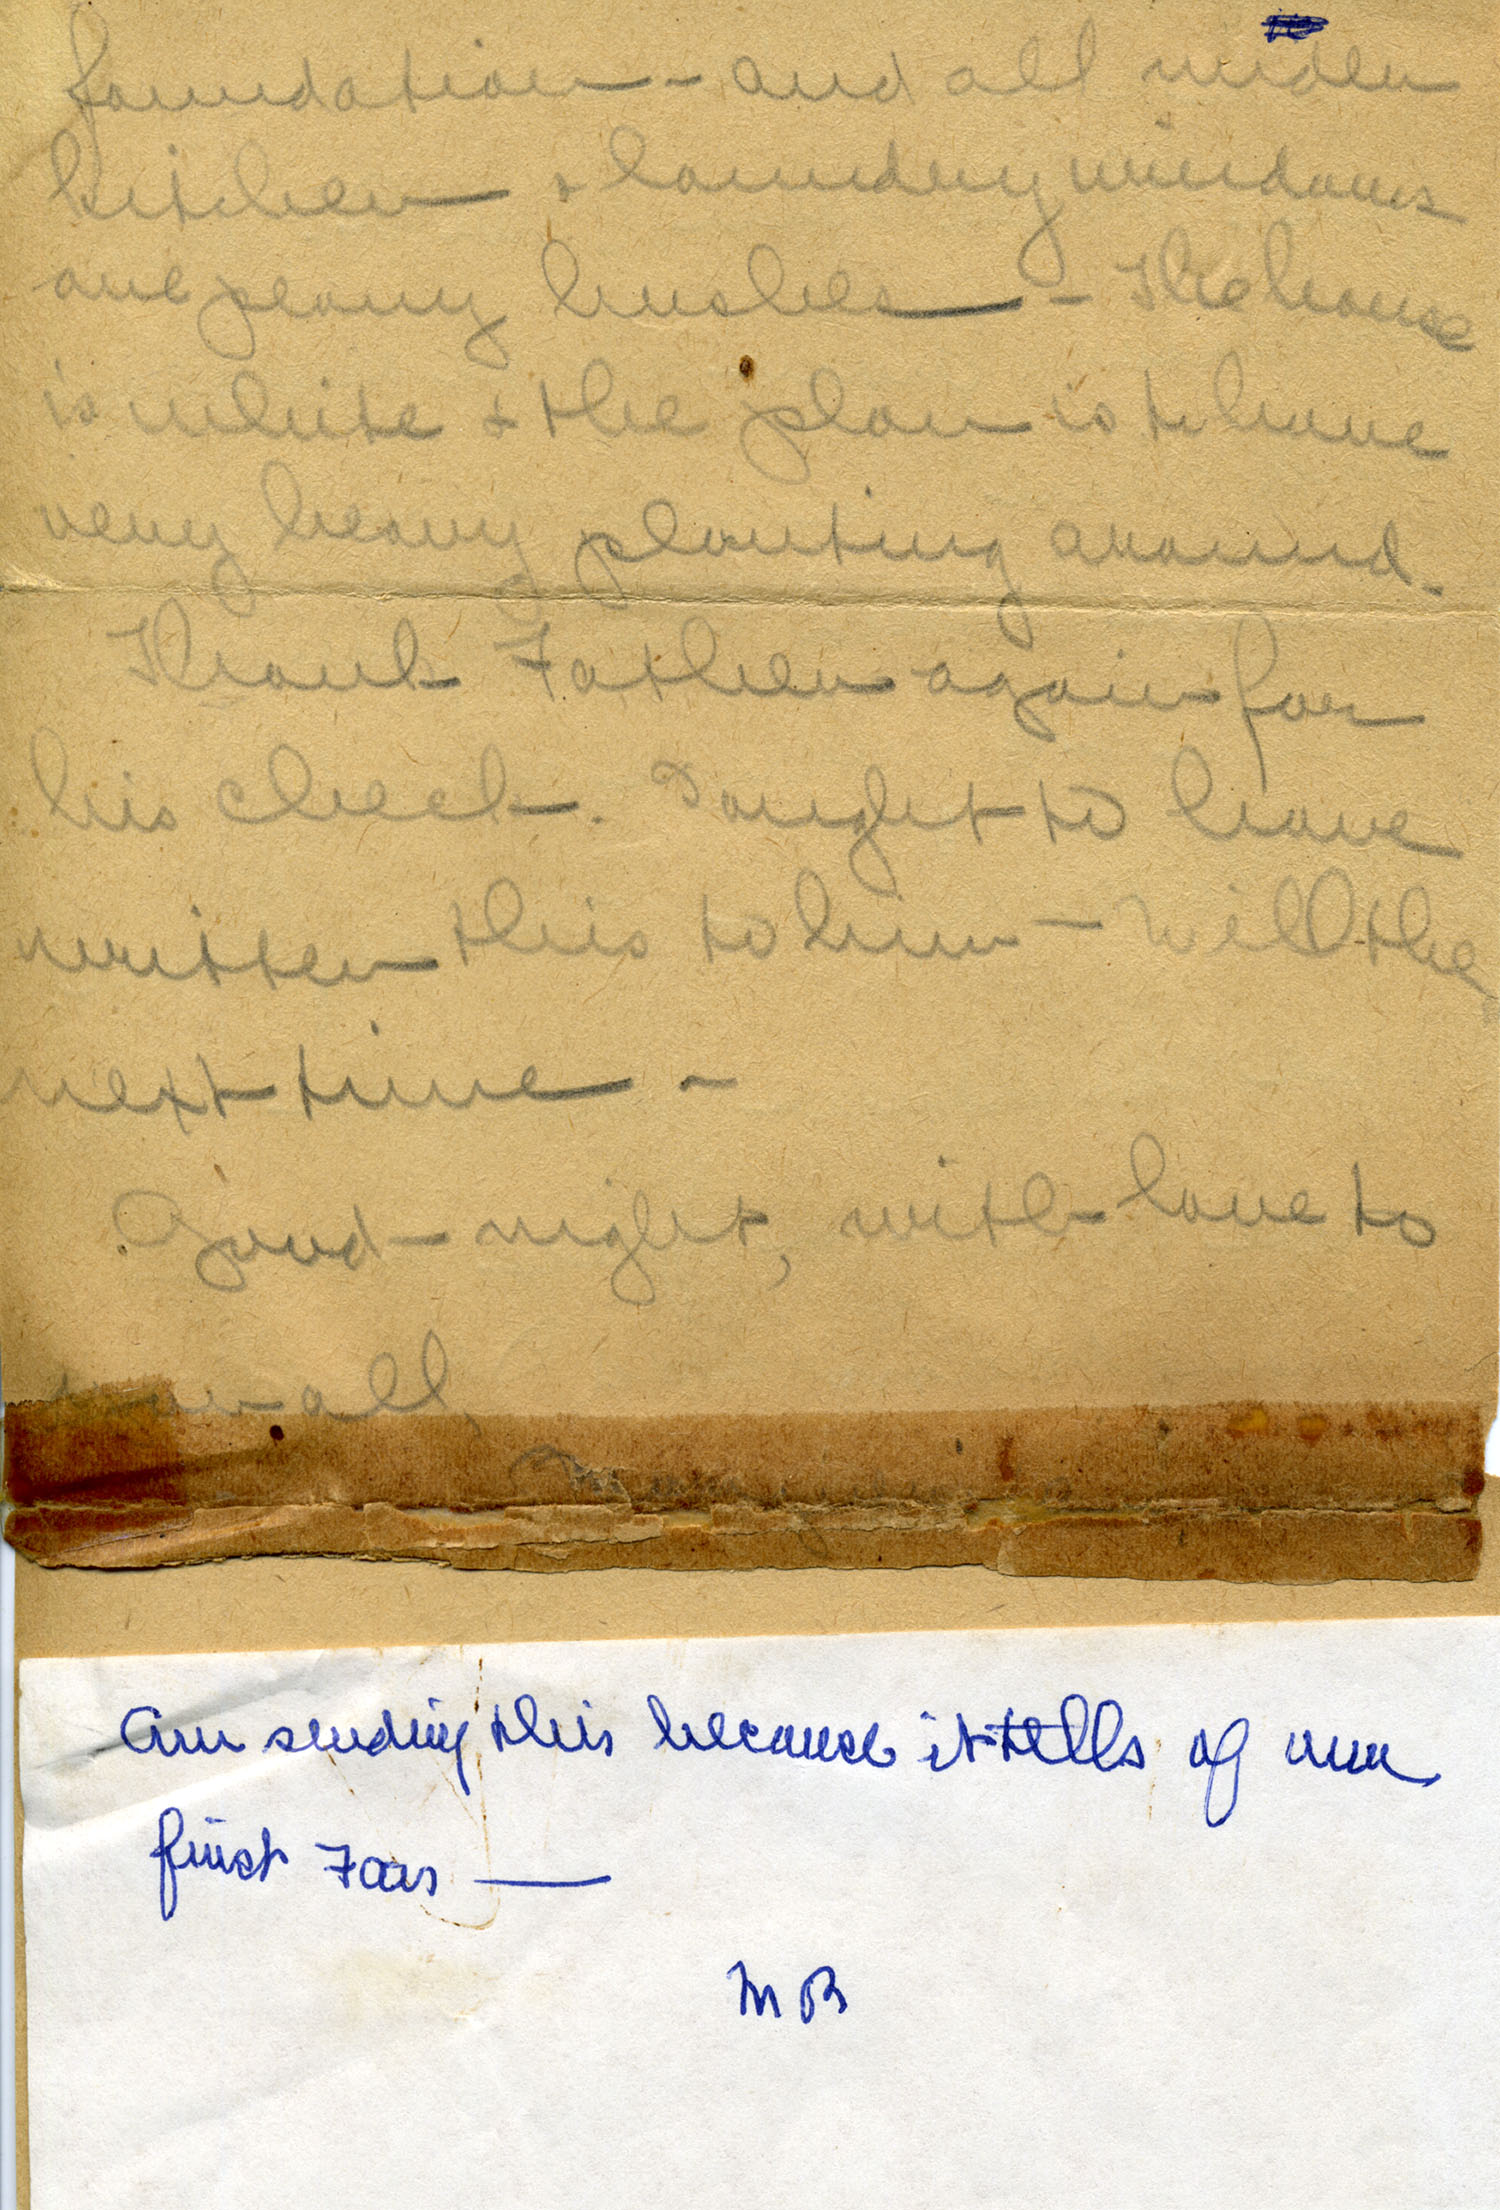 foundation - and all under
kitchen & laundry windows
are peony bushes - The house
is white & the plan is to have
very heavy planting around.
Thank Father again for
his check. I ought to have
written this to him - Will the
next time -
Good-night, with love to
you all,
Am sending this because it tells of our
first Foas —
MB